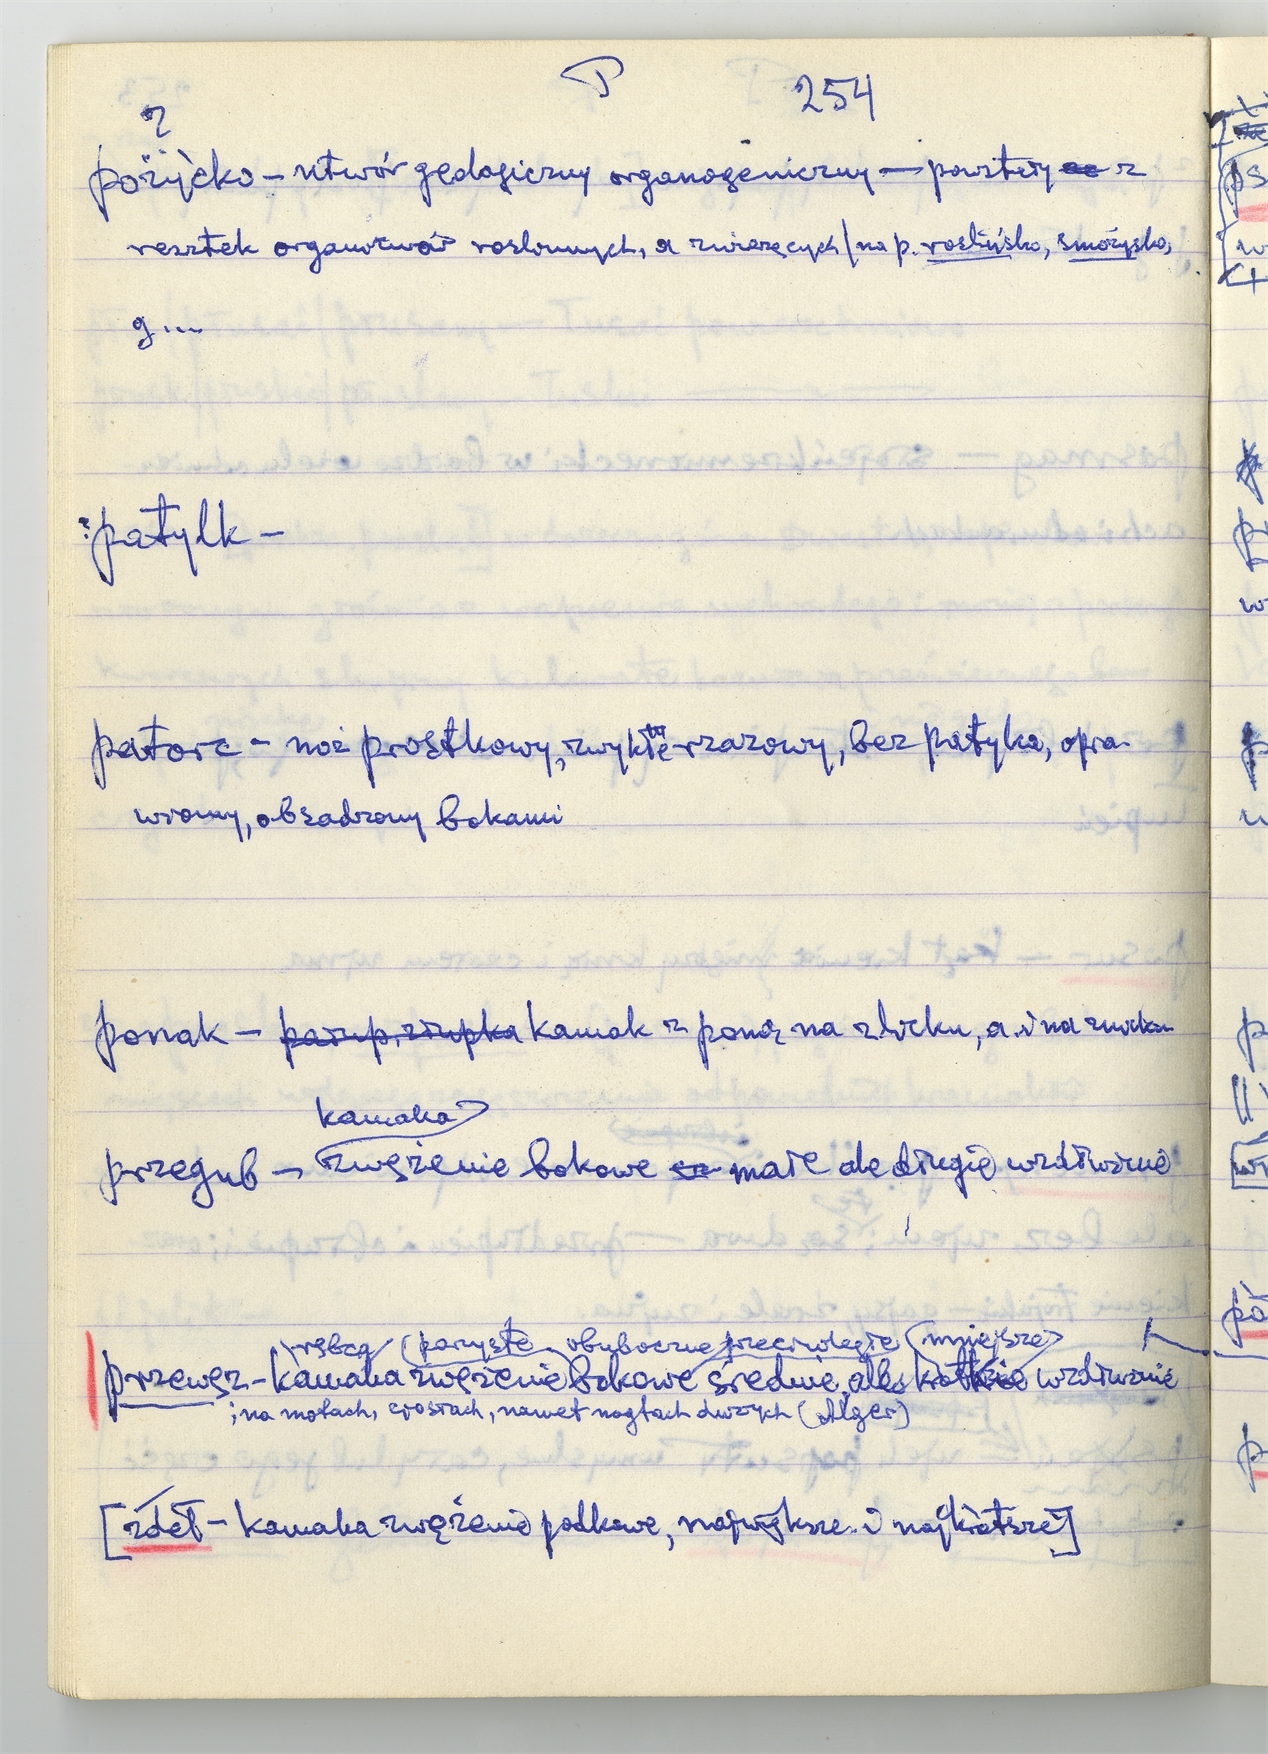 P 254
?
pożyćko – utwór geologiczny organogeniczny — powstały z
resztek organizmów roslinnych, a zwierzęcych / na p. roślińsko, smożysko,
g...
?patylk –
patorc – noż prostkowy, zwykle rzazowy, bez patyka, opra-
wiony, obsadzony bokami
ponak – kamak z poną na zbicku, a i na zwicku
kamaka
przegub – zwężenie bokowe małe ale długie wzdłużne
obuboczne przeciwległe (mniejsze)
przewęz – kamaka zwężenie bokowe średnie, ale krótkie wzdłużnie
; na motach, ciosłach, nawet nagłach dużych (Alger)
[zdet – kamaka zwężenie połkowe, największe i najkrótsze]